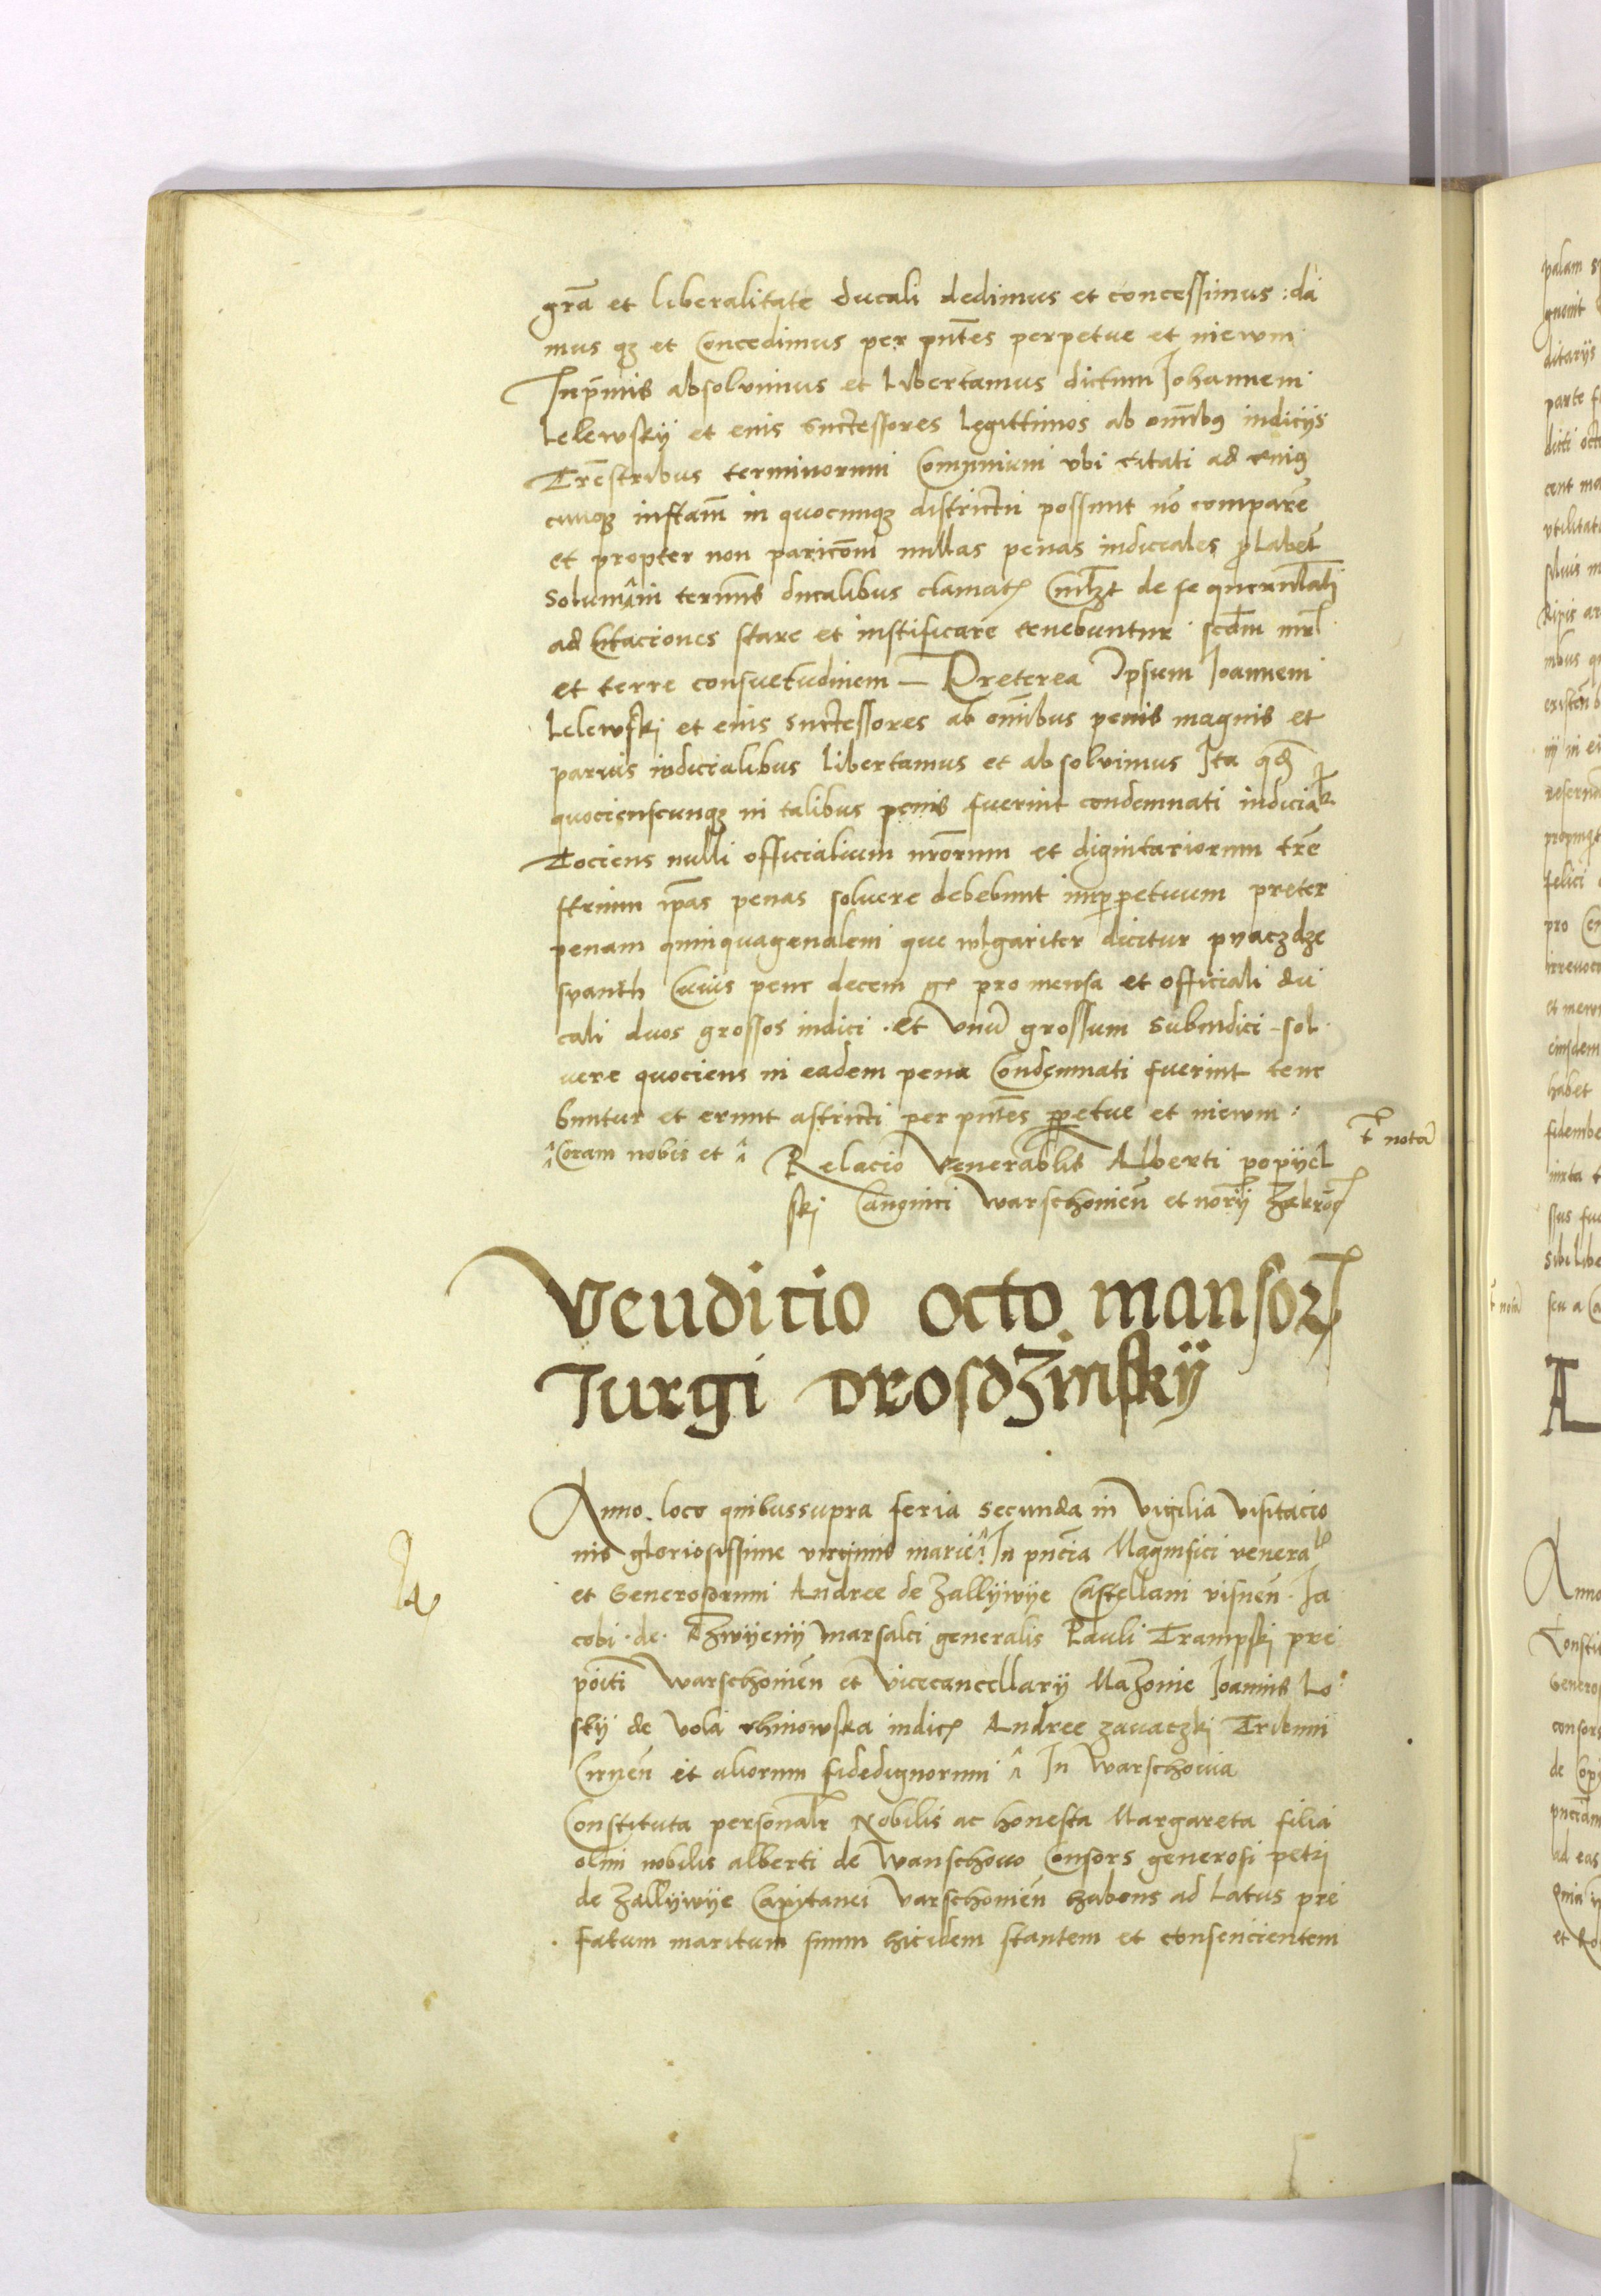 gra͞ et liberalitate ducali dedimus et concessimus : da
mus qꝫ et Concedimus per pn͞tes perpetue et in ewm
Inp͞mis absoluimus et Libertamus dictum Johannem
Lelewskÿ et eius Suctessores Legittimos ab om͞ibꝯ iudicÿs
Tre͞stribus terminorum Com͞unium vbi citati ad cuiꝯ
cumqꝫ insta͞m in quocunqꝫ districtu possunt no͞ compare͞
et propter non parico͞m nullas penas iudiciales
Solum in termi͞s ducalibus clamatꝭ de se
ad Citaciones stare et iustificare tenebuntur scd͞m
et terre consuetudinem — Preterea Ipsum Joannem
Lelewskj et eius Suctessores ab om͞ibus penis magnis et
paruis iudicialibus Libertamus et absoluimus Ita qd͞
quociensscunqꝫ in talibus penis fuerint condemnati iudicial͞r
Tociens nulli officialium nr͞orum et dignitariorum tr͞e
strium ip͞as penas soluere debebunt imp̱petuum preter
penam quinquagenalem que wlgariter dicitur pyaczdze
syanth Cuius pene decem gꝭ pro mensa et officiali du
cali duos grossos iudici . et vnu͞ grossum Subiudici - sol
uere quociens in eadem pena Condemnati fuerint tene
buntur et erunt astricti per pn͞tes p̱petue et in ewm :
Coram nobis et
t͞ nota͞
Relacio Venerabl͞is Alberti popÿel
skj Canonici Warschouien͞ et nor͞ÿ Zakrocꝭ
Vendicio octo mansoꝝ
Jurgi Drosdzinskÿ
Anno . loco quibussupra feria secunda in Vigilia Visitacio
nis gloriosissime virginis marie In pn͞cia Magnifici venera͞b
et Generosorum Andree de Zallÿwÿe Castellani visnen͞ . Ja
cobi . de . Dzwÿenÿ Marsalci generalis Pauli Trampskj pre
po͞iti Warschouien͞ et Vicecancellarÿ Mazouie Joannis Lo
skÿ de Vola chinowska iudicꝭ Andree zauaczkj Tribuni
Cirnen͞ et aliorum fidedignorum In Warschouia
Constituta personal͞r Nobilis ac honesta Margareta filia
olim nobilis alberti de Wanschouo Consors generosi petri
de Zallÿwÿe Capitanei Varschouien͞ habens ad Latus pre
fatum maritum suum hicidem stantem et consencientem